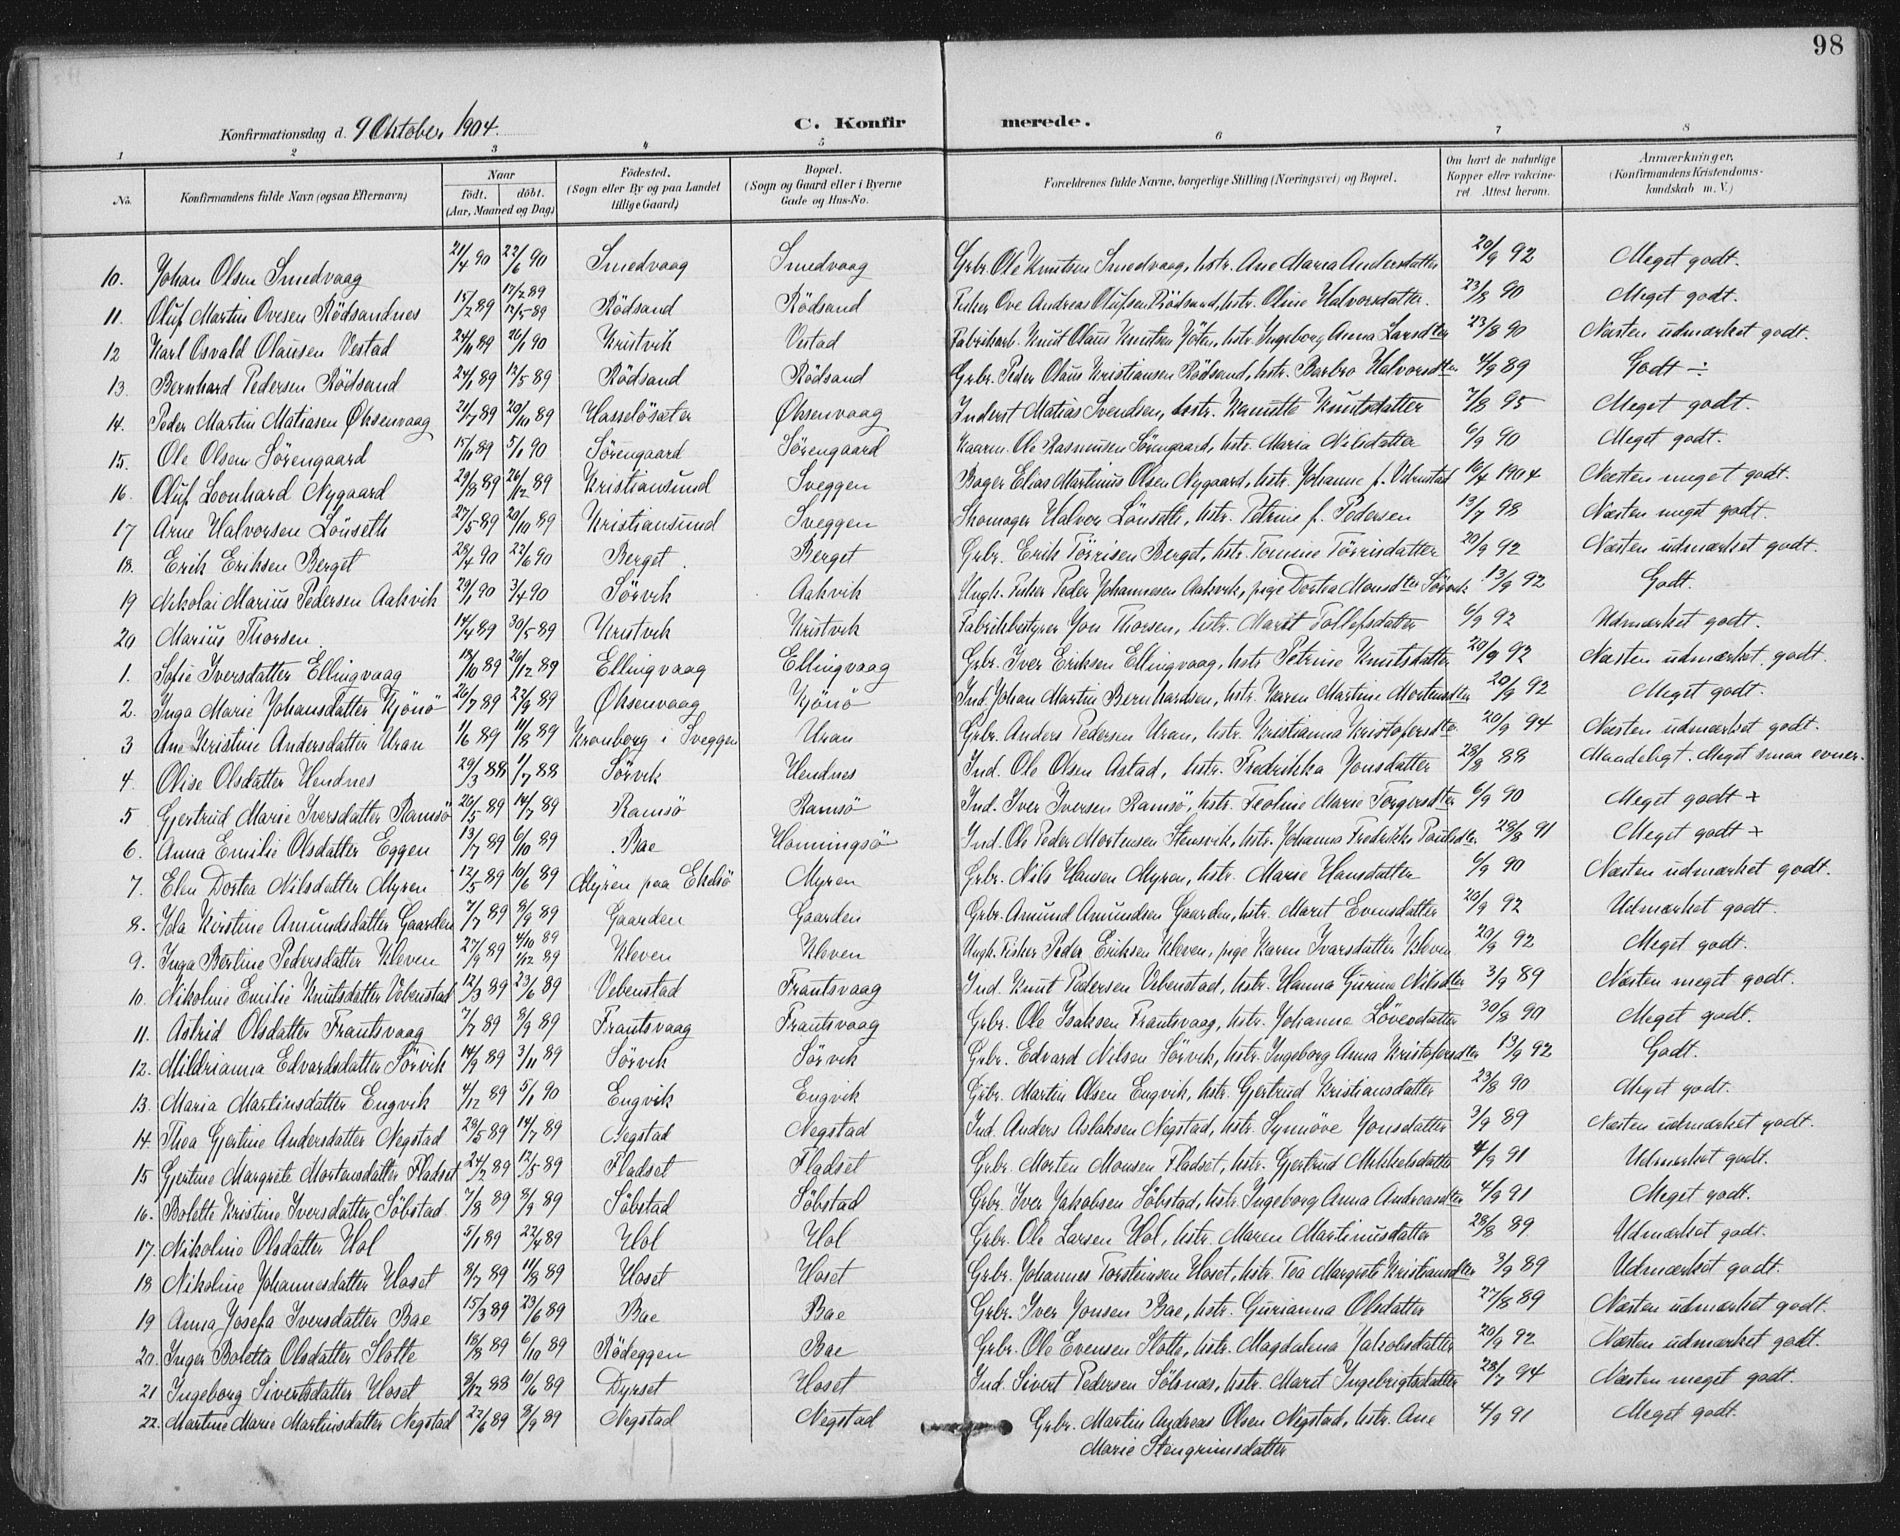 98
Konfirmationsdag d. 9 Oktober 1904.
C. Konfirmerede.
1 2 3 4 5 6 7 8
No. Konfirmandens fulde Navn (ogsaa Efternavn) Naar födt. döbt. (Aar, Maaned og Dag) Födested. (Sogn eller By og paa Landet tillige Gaard) Bopæl. (Sogn og Gaard eller i Byerne Gade og Hus-No. Forældrenes fulde Navne, borgerlige Stilling (Næringsvei) og Bopæl. Om havt de naturlige Kopper eller vakcineret Attest herom. Anmærkninger. (Konfirmandens Kristendomskundskab m. V.)
10. Johan Olsen Smedvaag 21/4 90 22/6 90 Smedvaag Smedvaag Grbr. Ole Knutsen Smedvaag, hstr. Ane Maria Andersdatter 20/9 92 Meget godt.
11. Oluf Martin Ovesen Rödsandnes 15/2 89 17/2 89 12/5 89 Rödsand Rödsand Fisker Ove Andreas Olufsen Rödsand, hstr. Oline Halvorsdatter. 23/8 90 Meget godt.
12 Karl Osvald Olausen Vestad 24/11 89 26/1 90 Kristvik Vestad Fabrikarb. Knut Olaus Knutsen, hstr. Ingeborg Anna Larsdter 23/8 90 Næsten udmærket godt.
13. Bernhard Pedersen Rödsand 24/1 89 12/5 89 Rödsand Rödsand Grbr. Peder Olaus Kristiansen Rödsand, hstr. Barbro Halvorsdter 4/9 89 Godt ÷
14. Peder Martin Matiasen Öksenvaag 21/7 89 20/10 89 Hasselösæter Öksenvaag Inderst Matias Svendsen, hstr. Kanutte Knutsdatter 7/8 95 Meget godt.
15. Ole Olsen Sörengaard 15/11 89 5/1 90 Sörengaard Sörengaard Ole Rasmussen Sörengaard, hstr. Maria Nilsdatter 6/9 90 Meget godt.
16. Oluf Leonhard Nygaard 29/8 89 26/12 89 Kristiansund Sveggen Bager Elias Martinus Olsen Nygaard, hstr. Johanne f. 16/4 1904 Næsten meget godt.
17 Arne Halvorsen Lönseth 27/5 89 20/10 89 Kristiansund Sveggen Skomager Halvor Lönseth, hstr. Petrine f. Pedersen 13/7 98 Næsten meget godt.
18. Erik Eriksen Berget 28/4 90 22/6 90 Berget. Berget Grbr. Erik Törrisen Berget, hstr. Tomine Törrisdatter 20/9 92 Næsten udmærket godt.
19 Nikolai Marius Pedersen Aakvik 29/1 90 3/4 90 Sörvik Aakvik Ungk. Fisker Peder Johannesen Aakvik, pige Dortea Monsdter Sörvik 13/9 92 Godt.
20 Marius Thorsen 14/4 89 30/5 89 Kristvik Kristvik Fabrikbestyrer Jon Thorsen, hstr. Marit Tollefsdatter 6/9 92 Udmærket godt.
1. Sofie Iversdatter Ellingvaag 18/10 89 26/12 89 Ellingvaag Ellingvaag Grbr. Iver Eriksen Ellingvaag, hstr. Petrine Knutsdatter 20/9 92 Næsten udmærket godt.
2. Inga Marie Johansdatter Kjönö 26/7 89 22/9 89 Öksenvaag Kjönö Ind. Johan Martin Bernhardsen, hstr. Karen Martine Mortensdter 20/9 92 Meget godt.
3 Ane Kristine Andersdatter Uran 1/6 89 11/8 89 Kronborg i Sveggen Uran Grbr. Anders Pedersen Uran, hstr. Kristianna Kristofersdter 20/9 94 Næsten udmærket godt.
4. Olise Olsdatter Hendnes 29/3 88 1/7 88 Sörvik Hendnes Ind. Ole Olsen Astad, hstr. Fredrikka Jonsdatter 28/8 88 Maadeligt. Meget smaa evner.
5 Gjertrud Marie Iversdatter Ramsö 26/5 89 14/7 89 Ramsö Ramsö Ind. Iver Iversen Ramsö, hstr. Teoline Marie Torgersdter 6/9 90 Meget godt +
6. Anna Emilie Olsdatter Eggen 13/7 89 6/10 89 Bae Honningsö Ind. Ole Peder Mortensen Stensvik, hstr. Johanna Fredrikke Paulsdter 28/8 91 Meget godt +
7. Elen Dortea Nilsdatter Myren 12/5 89 10/6 89 Myren paa Ekelsö Myren Grbr. Nils Hansen Myren, hstr. Marie Hansdatter 6/9 90 Næsten udmærket godt.
8. Ida Kristine Amundsdatter Gaarden 7/7 89 8/9 89 Gaarden Gaarden Grbr. Amund Amundsen Gaarden, hstr. Marit Evensdatter 20/9 92 Udmærket godt.
9. Inga Bertine Pedersdatter Kleven 27/9 89 4/10 89 1/12 89 Kleven Kleven Ungk. Fisker Peder Eriksen Kleven, pige Karen Ivarsdatter Kleven 20/9 92 Meget godt.
10. Nikoline Emilie Knutsdatter Vebenstad 12/3 89 23/6 89 Vebenstad Frantsvaag Ind. Knut Pedersen Vebenstad, hstr. Hanna Gurine Nilsdter 3/9 89 Næsten meget godt.
11. Astrid Olsdatter Frantsvaag 7/7 89 8/9 89 Frantsvaag Frantsvaag Grbr. Ole Isaksen Frantsvaag, hstr. Johanne Lövesdatter 30/8 90 Meget godt.
12. Mildrianna Edvardsdatter Sörvik 14/9 89 3/11 89 Sörvik Sörvik Grbr. Edvard Nilsen Sörvik, hstr. Ingeborg Anna Kristofersdter 13/9 92 Godt.
13. Maria Martinsdatter Engvik 4/12 89 5/1 90 Engvik Engvik Grbr. Martin Olsen Engvik, hstr. Gjertrud Kristiansdatter 23/8 90 Meget godt.
14. Thea Gjertine Andersdatter Negstad 28/5 89 14/7 89 Negstad Negstad Ind. Anders Aslaksen Negstad, hstr. Synnöve Jonsdatter 3/9 89 Næsten udmærket godt.
15 Gjertine Margrete Mortensdatter Fladset 24/2 89 12/5 89 Fladset Fladset Grbr. Morten Monsen Fladset, hstr. Gjertrud Mikkelsdatter 4/9 91 Udmærket godt.
16. Bolette Kristine Iversdatter Söbstad 7/8 89 8/9 89 Söbstad Söbstad Grbr. Iver Jakobsen Söbstad, hstr. Ingeborg Anna Andreasdter 4/9 91 Meget godt.
17. Nikoline Olsdatter Hol 5/1 89 22/4 89 Hol Hol Grbr. Ole Larsen Hol, hstr. Maren Martinusdatter 28/8 89. Udmærket godt.
18 Nikoline Johannesdatter Hoset 8/7 89 11/8 89 Hoset Hoset Grbr. Johannes Torsteinsen Hoset, hstr. Tea Margrete Kristiansdter 3/9 89 Udmærket godt.
19 Anna Josefa Iversdatter Bae 15/3 89 23/6 89 Bae Bae Grbr. Iver Jonsen Bae, hstr. Gurianna Olsdatter 27/8 89 Næsten udmærket godt.
20. Inger Boletta Olsdatter Slotte 18/8 89 6/10 89 Rödeggen Bae Grbr. Ole Evensen Slotte, hstr. Magdalena Jakobsdatter 20/9 92 Næsten udmærket godt.
21 Ingeborg Sivertsdatter Hoset 8/12 88 10/6 89 Dyrset Hoset Ind. Sivert Pedersen Sölsnæs, hstr. Marit Ingebrigtsdatter 28/7 94 Næsten meget godt.
22. Martine Marie Martinsdatter Negstad 22/6 89 8/9 89 Negstad Negstad Grbr. Martin Andreas Olsen Negstad, hstr. Ane 4/9 91 Meget godt.
Marie Stengrimsdatter